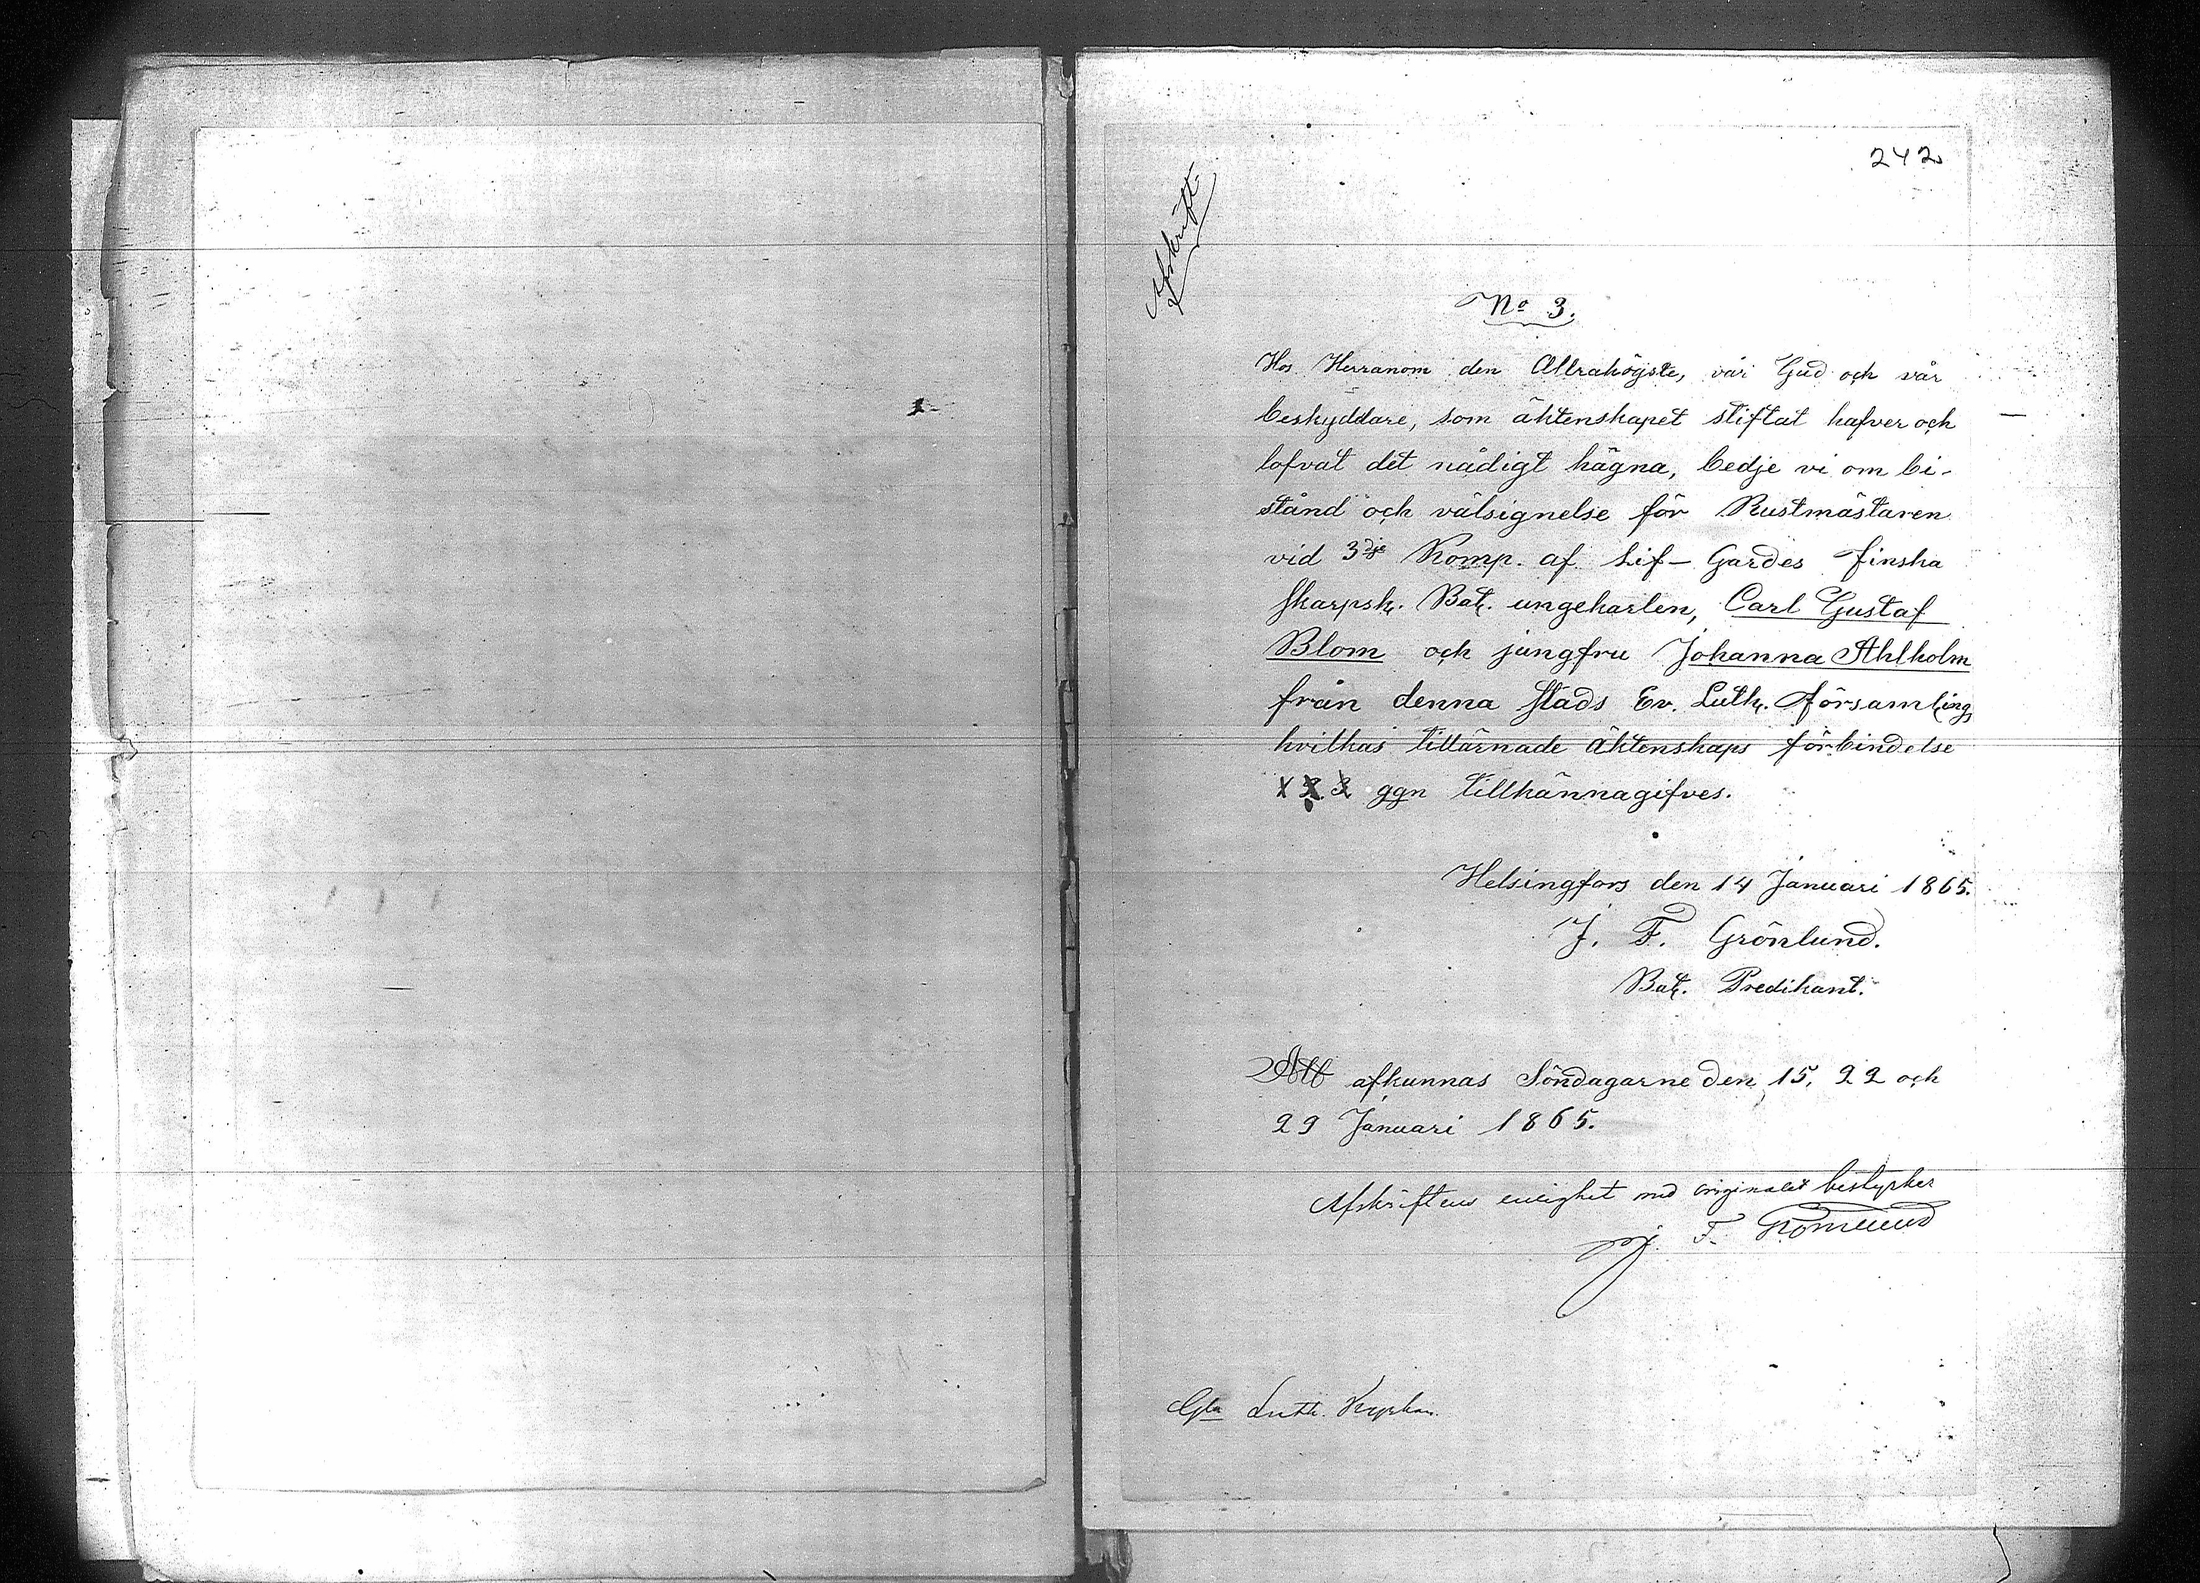 242
Afskrift.
No 3.
Hos Herranom den Allrahögste, vår Gud och vår
beskyddare, som äktenskapet stiftat hafver och
lofvat det nådigt hägna, bedje vi om bi-
stånd och välsignelse för Rustmästaren
vid 3dje Komp. af Lif-Gardes Finska
Skarpsk. Bat. ungekarlen, Carl Gustaf
Blom och jungfru Johanna Ahlholm
från denna Stads Ev. Luth. församling,
hvilkas tilltärnade äktenskaps förbindelse
1 2 3 ggn tillkännagifves.
Helsingfors den 14 Januari 1865.
J. F. Grönlund.
Bat. Predikant.
Att afkunnas Söndagarne den 15, 22 och
29 Januari 1865.
Afskriftens enighet med originalet bestyrker
J. F. Grönlund
Gla Luth. Kyrkan.